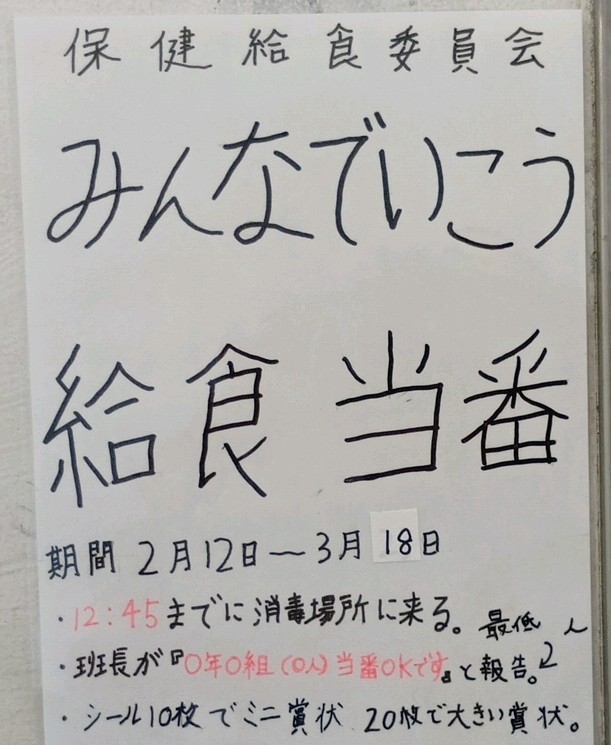 保健給食委員会
みんなでいこう
給食当番
期間 2月12日〜3月18日
・12:45までに消毒場所に来る。
・班長が『○年○組(○人)当番OKです』と報告。最低2人
・シール10枚でミニ賞状 20枚で大きい賞状。